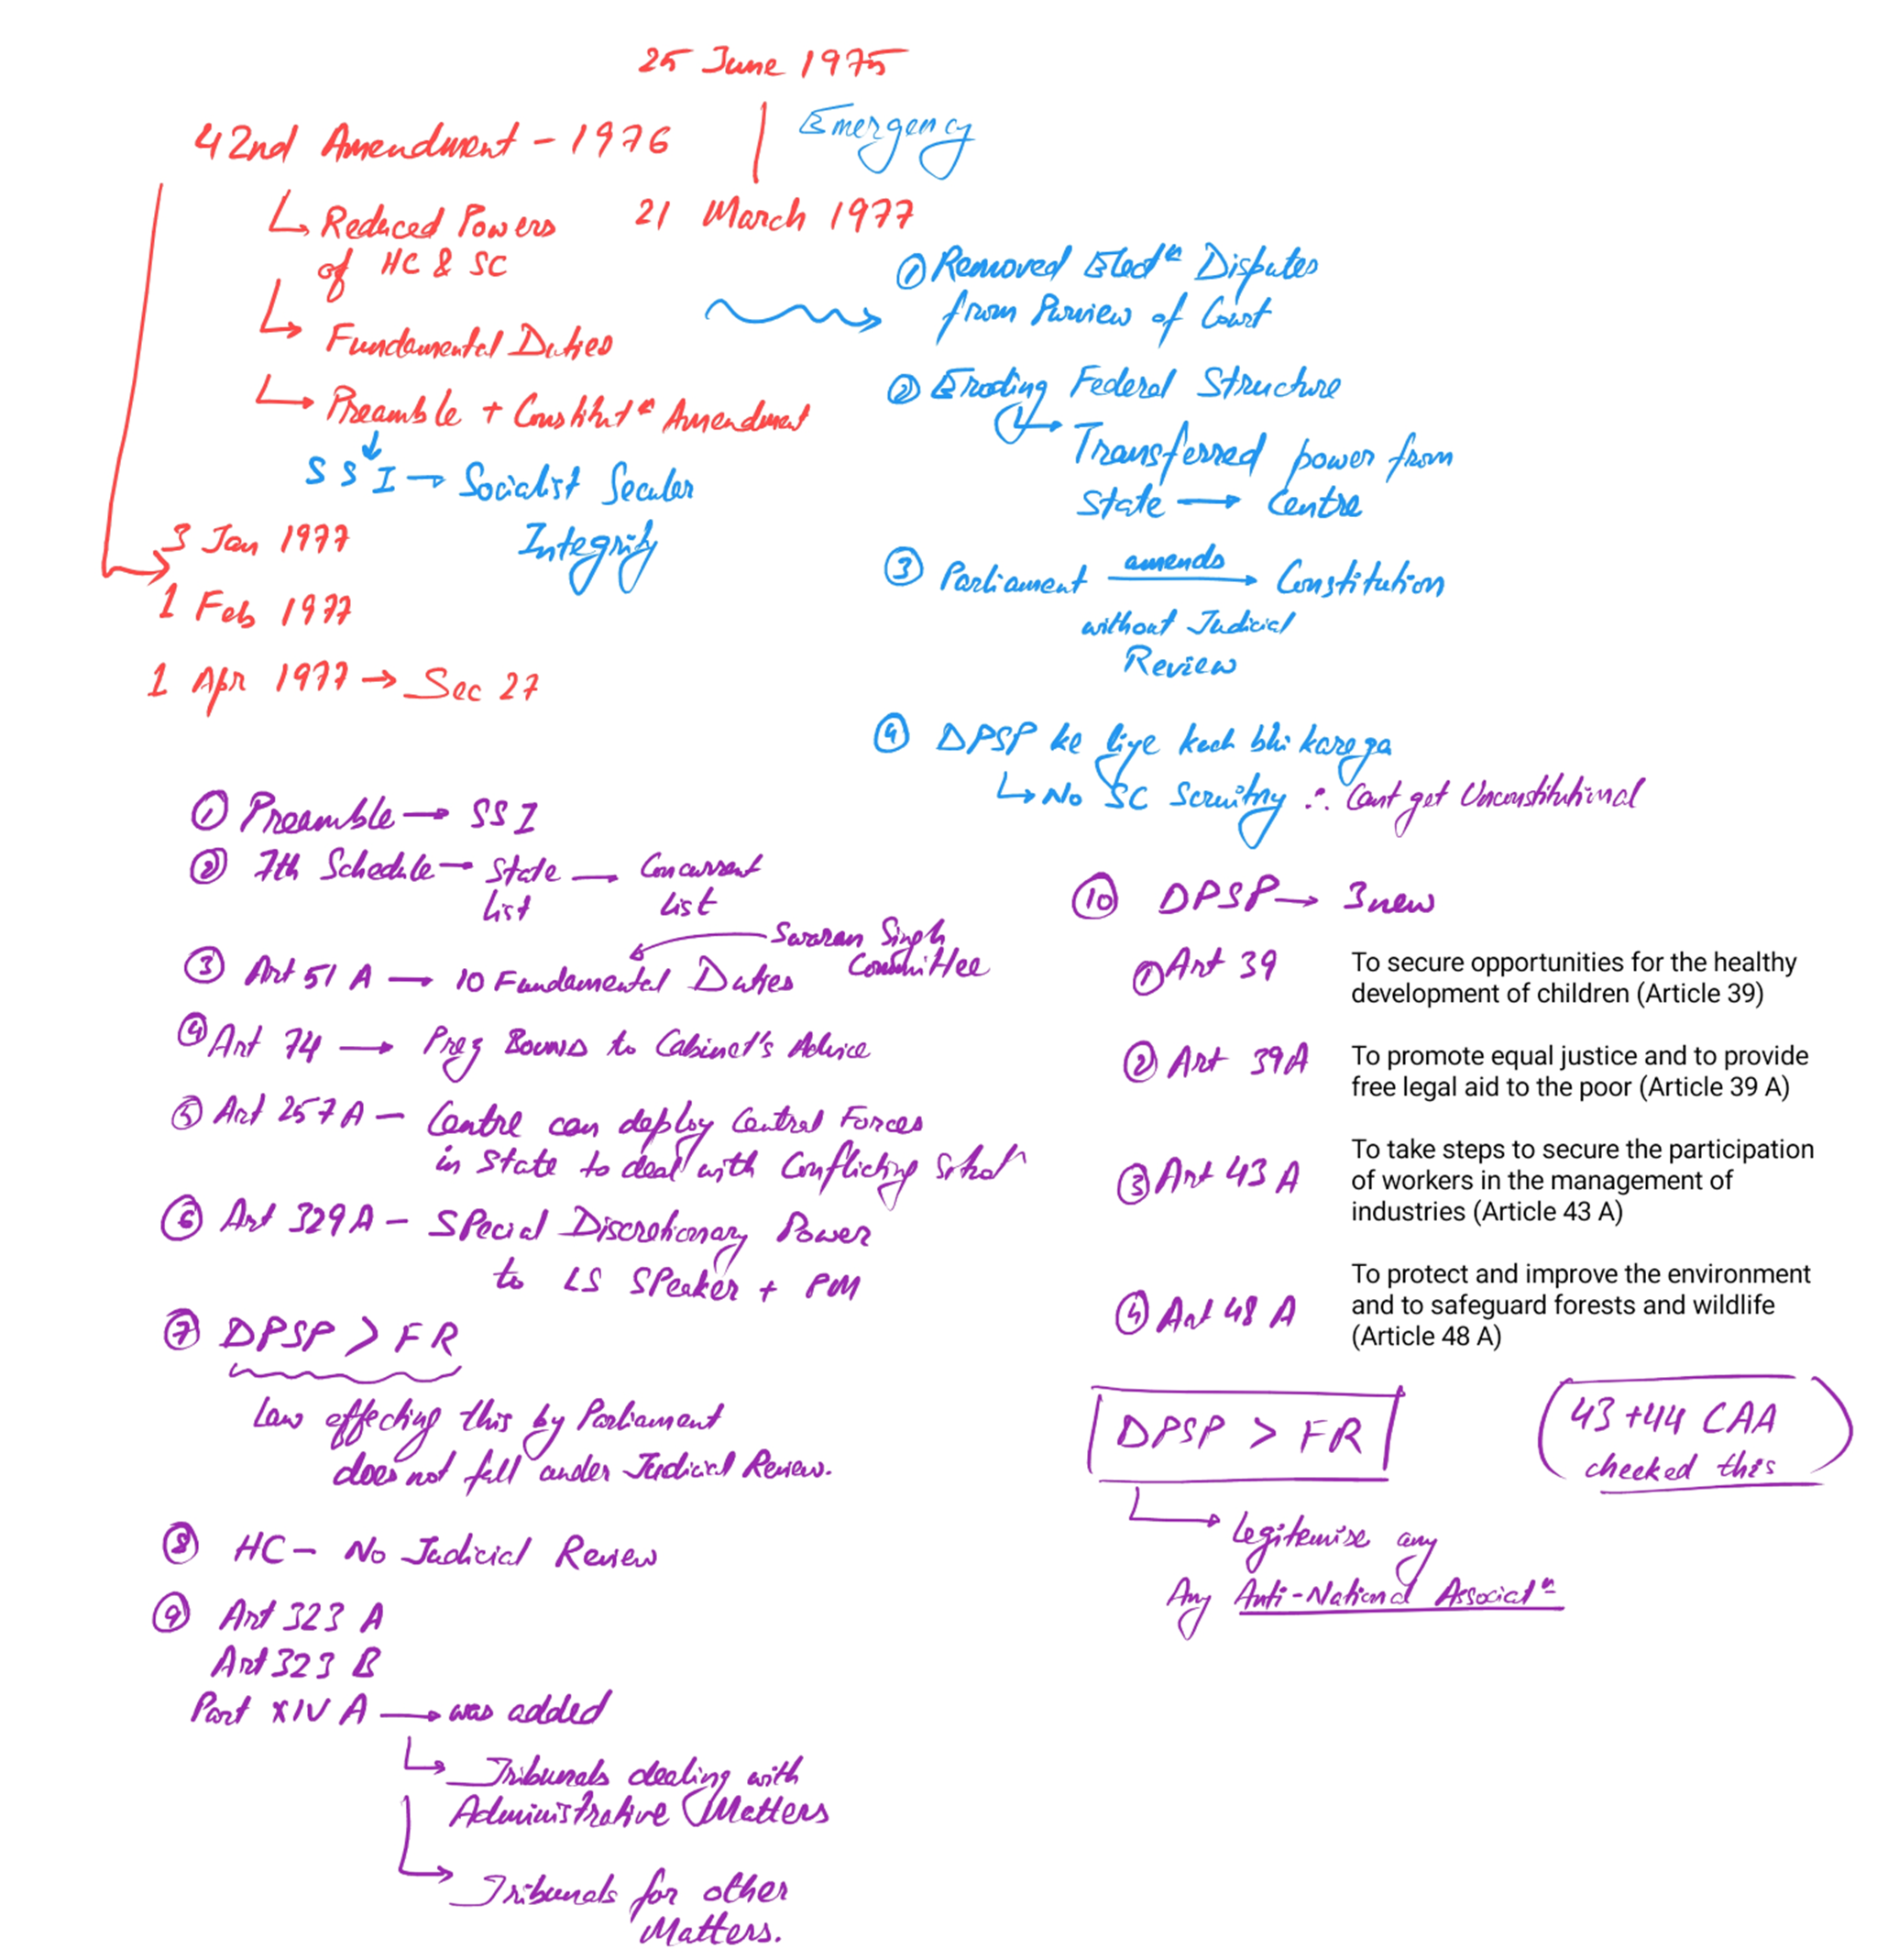 25 June 1975
Emergency
21 March 1977
42nd Amendment - 1976
Reduced Powers
of HC & SC
Fundamental Duties
Preamble + Constitutn Amendment
SSI → Socialist Secular
Integrity
3 Jan 1977
1 Feb 1977
1 Apr 1977 → Sec 27
① Removed Electn Disputes
from Purview of Court
② Eroding Federal Structure
Transferred power from
State → Centre
③ Parliament amends → Constitution
without Judicial
Review
④ DPSP ke liye kuch bhi karega
No SC Scruitny ∴ Cant get Unconstitutional
① Preamble → SSI
② 7th Schedule → State — Concurrent
list list
Swaran Singh
Committee
③ Art 51 A → 10 Fundamental Duties
④ Art 74 → Prez Bound to Cabinet's Advice
⑤ Art 257 A - Centre can deploy Central Forces
in State to deal with Conflicting
⑥ Art 329A - Special Discretionary Power
to LS Speaker + PM
⑦ DPSP > FR
Law effecting this by Parliament
does not fall under Judicial Review.
⑧ HC - No Judicial Review
⑨ Art 323 A
Art 323 B
Part XIV A → was added
Tribunals dealing with
Administrative Matters
Tribunals for other
Matters.
⑩ DPSP → 3 new
① Art 39
To secure opportunities for the healthy
development of children (Article 39)
② Art 39A
To promote equal justice and to provide
free legal aid to the poor (Article 39 A)
③ Art 43 A
To take steps to secure the participation
of workers in the management of
industries (Article 43 A)
④ Art 48 A
To protect and improve the environment
and to safeguard forests and wildlife
(Article 48 A)
DPSP > FR
43 + 44 CAA
checked this
Legitemise any
Any Anti-National Associatn